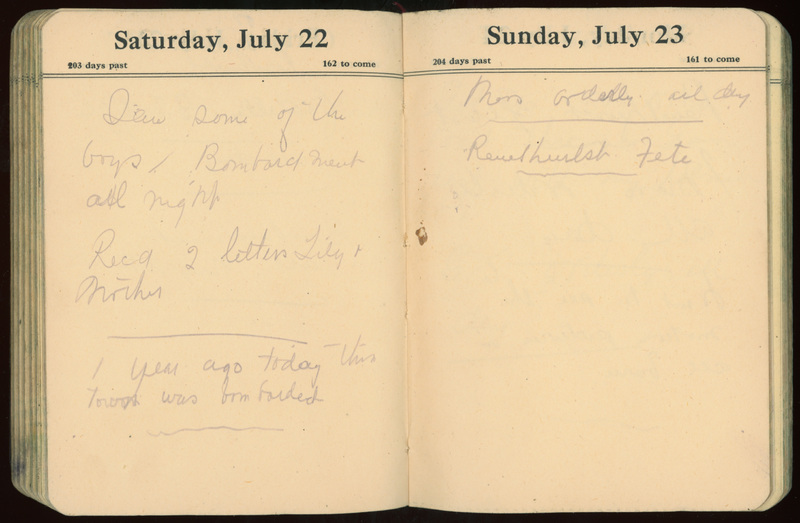 Saturday, July 22
203 days past 162 to come
Saw some of the
boys, Bombardment
all night
Recd 2 letters Lily +
Mother
1 year ago today this
town was bombarded
Sunday, July 23
204 days past 161 to come
Mess orderly all day
Fete